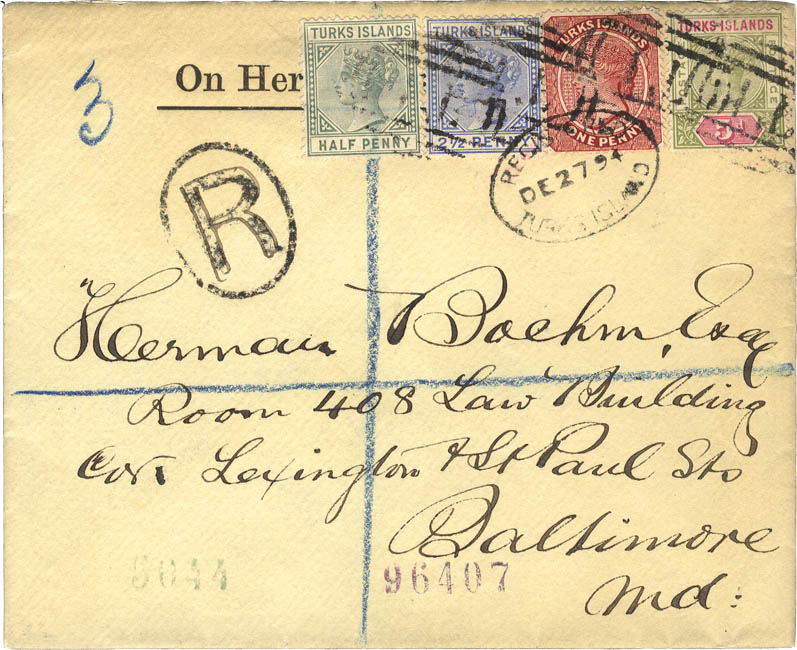 3
On Her
TURKS ISLANDS
HALF PENNY
TURKS ISLANDS
2½ PENNY
TURKS ISLANDS
ONE PENNY
TURKS ISLANDS
5d
DE 27 94
TURKS ISLAND
R
Herman Boehm, Esq
Room 408 Law Building
Cor. Lexington & St Paul Sts
Baltimore
Md:
96407